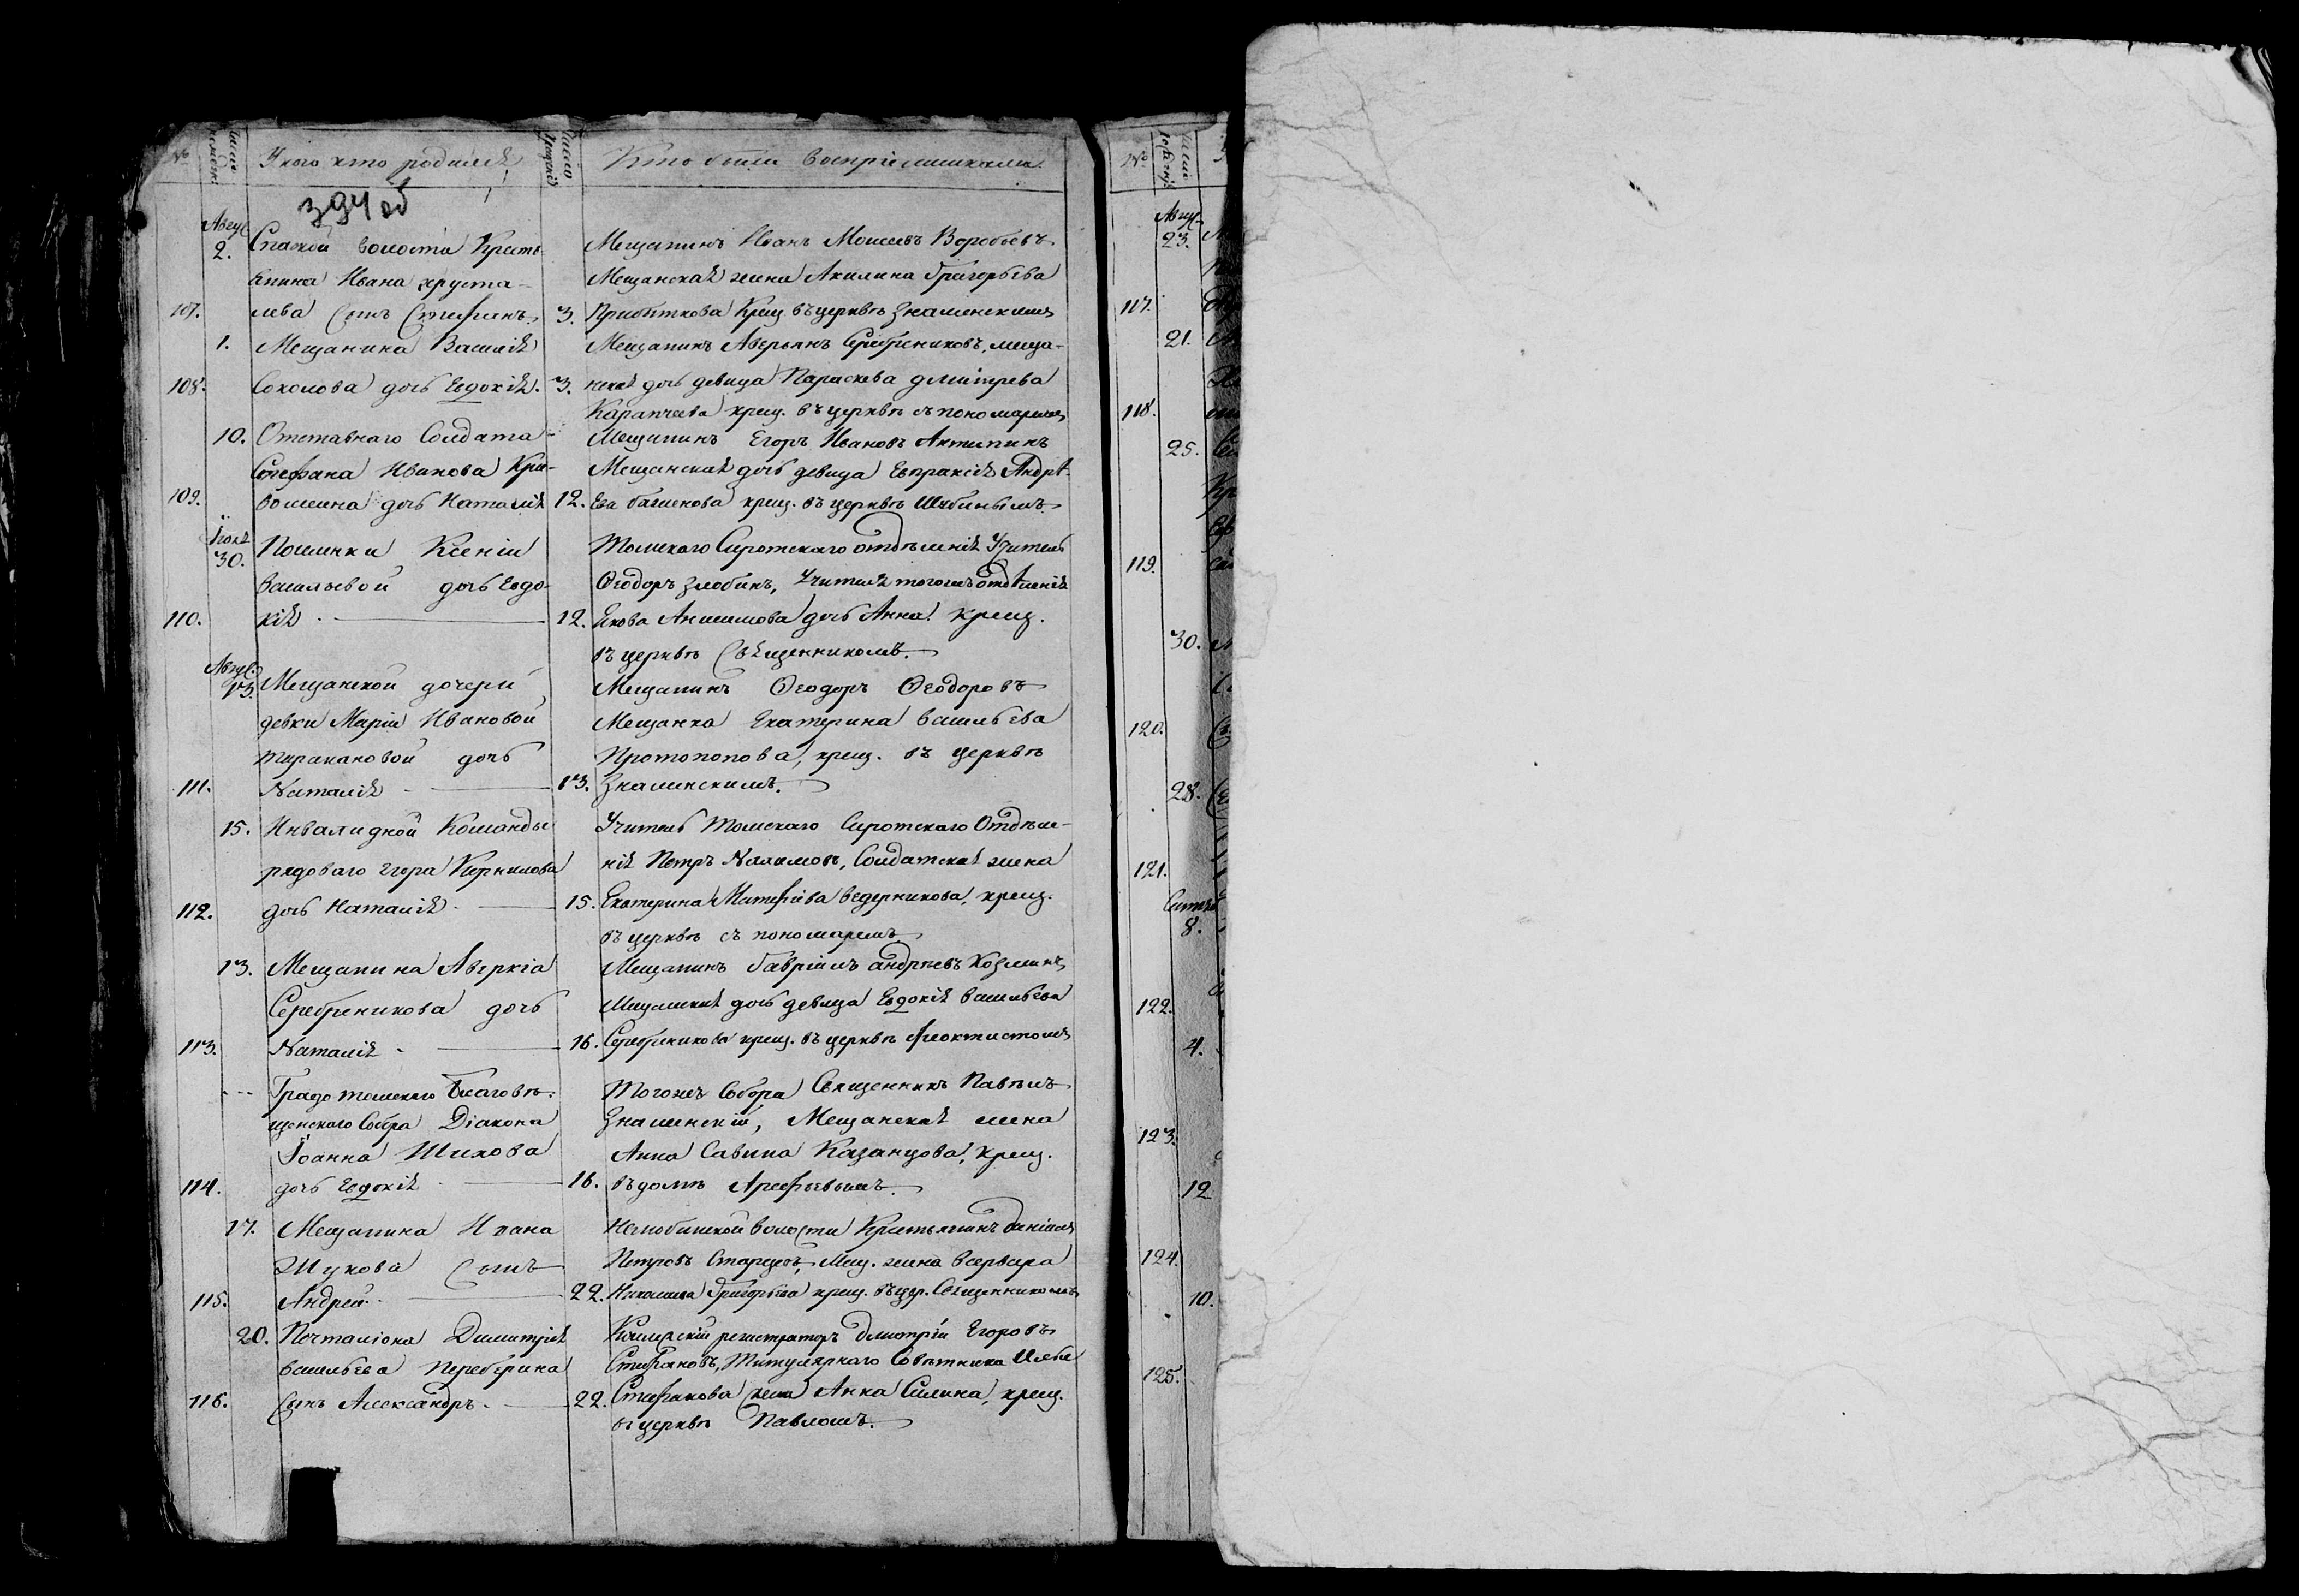 № Число рожденія У кого кто родился Число крещенія Кто были воспріемниками.
394 об
Авгус
2. Спаской волости Кресть-
янина Ивана хруста-
107. лева Сынъ Стефанъ. 3.
Мещанинъ Иванъ Моисеевъ Воробьевъ
Мещанская жена Акилина Григорьева
Прибыткова Крещ. въ церквѣ Знаменскимъ
1. Мещанина Василія
108. Соколова дочь Евдокія. 3.
Мещанинъ Аверьянъ Серебрениковъ, меща-
нская дочь девица Параскева дмитрева
крещ. въ церквѣ съ пономаремъ
10. Отставнаго Солдата
Стефана Иванова Кри-
109. вошеина дочь Наталія 12.
Мещанинъ Егоръ Ивановъ Антипинъ
Мещанская дочь девица Евпраксія Андрѣ-
ева крещ. въ церквѣ Шубинымъ.
Іюля
30. Посленки Ксеніи
васильевой дочь Евдо-
110. кія 12.
Томскаго Сиротскаго отдѣленія Учитель
Ѳеодоръ Злобинъ, Учителя тогожъ отдѣленія
Якова Анисимова дочь Анна Крещ.
въ церквѣ Священникомъ.
Авгус.
13. Мещанской дочери
девки Маріи Ивановой
Таракановой дочь
111. Наталія 13.
Мещанинъ Ѳеодоръ Ѳеодоровъ
Мещанка Екатерина васильева
Протопопова, крещ. въ церквѣ
Знаменскимъ.
15. Инвалидной Команды
рядоваго Егора Корнилова
112. дочь Наталія. 15.
Учитель Томскаго Сиротскаго Отдѣле-
нія Петръ, Солдатская жена
Екатерина Матфѣева ведерникова, крещ.
въ церквѣ съ пономаремъ
13. Мещанина Аверкія
Серебреникова дочь
113. Наталія 16.
Мещанинъ Гавріилъ андреевъ Козминъ,
Мещанская дочь девица Евдокія васильева
Серебреникова крещ. въ церквѣ феоктистомъ
Градо томскаго Благовѣ-
щенскаго Собора Діакона
Іоанна Шихова
114. дочь Евдокія 16.
Тогожъ Собора Священникъ Павелъ
Знаменскій, Мещанская жена
Анна Савина Казанцова, крещ.
въ домѣ Арефьевымъ.
17. Мещанина Ивана
Жукова Сынъ
115. Андрей. 22.
Нелюбинской волости Крестьянинъ даніилъ
Петровъ Старцовъ, Мещ. жена варвара
Николаева Григорьева крещ. въ цер. Священникомъ
20. Почталіона Димитрія
васильева Переберина
116. Сынъ Александръ. 22.
Колежскій регистраторъ дмитрій Егоровъ
Стефановъ, Титулярнаго Совѣтника Ильи
Стефанова жена Анна Силина, крещ.
въ церквѣ Павломъ.
№
Авгус
23.
117.
21.
118.
25.
119.
30.
120.
28.
121.
8.
122.
4.
123.
12
124.
10.
125.